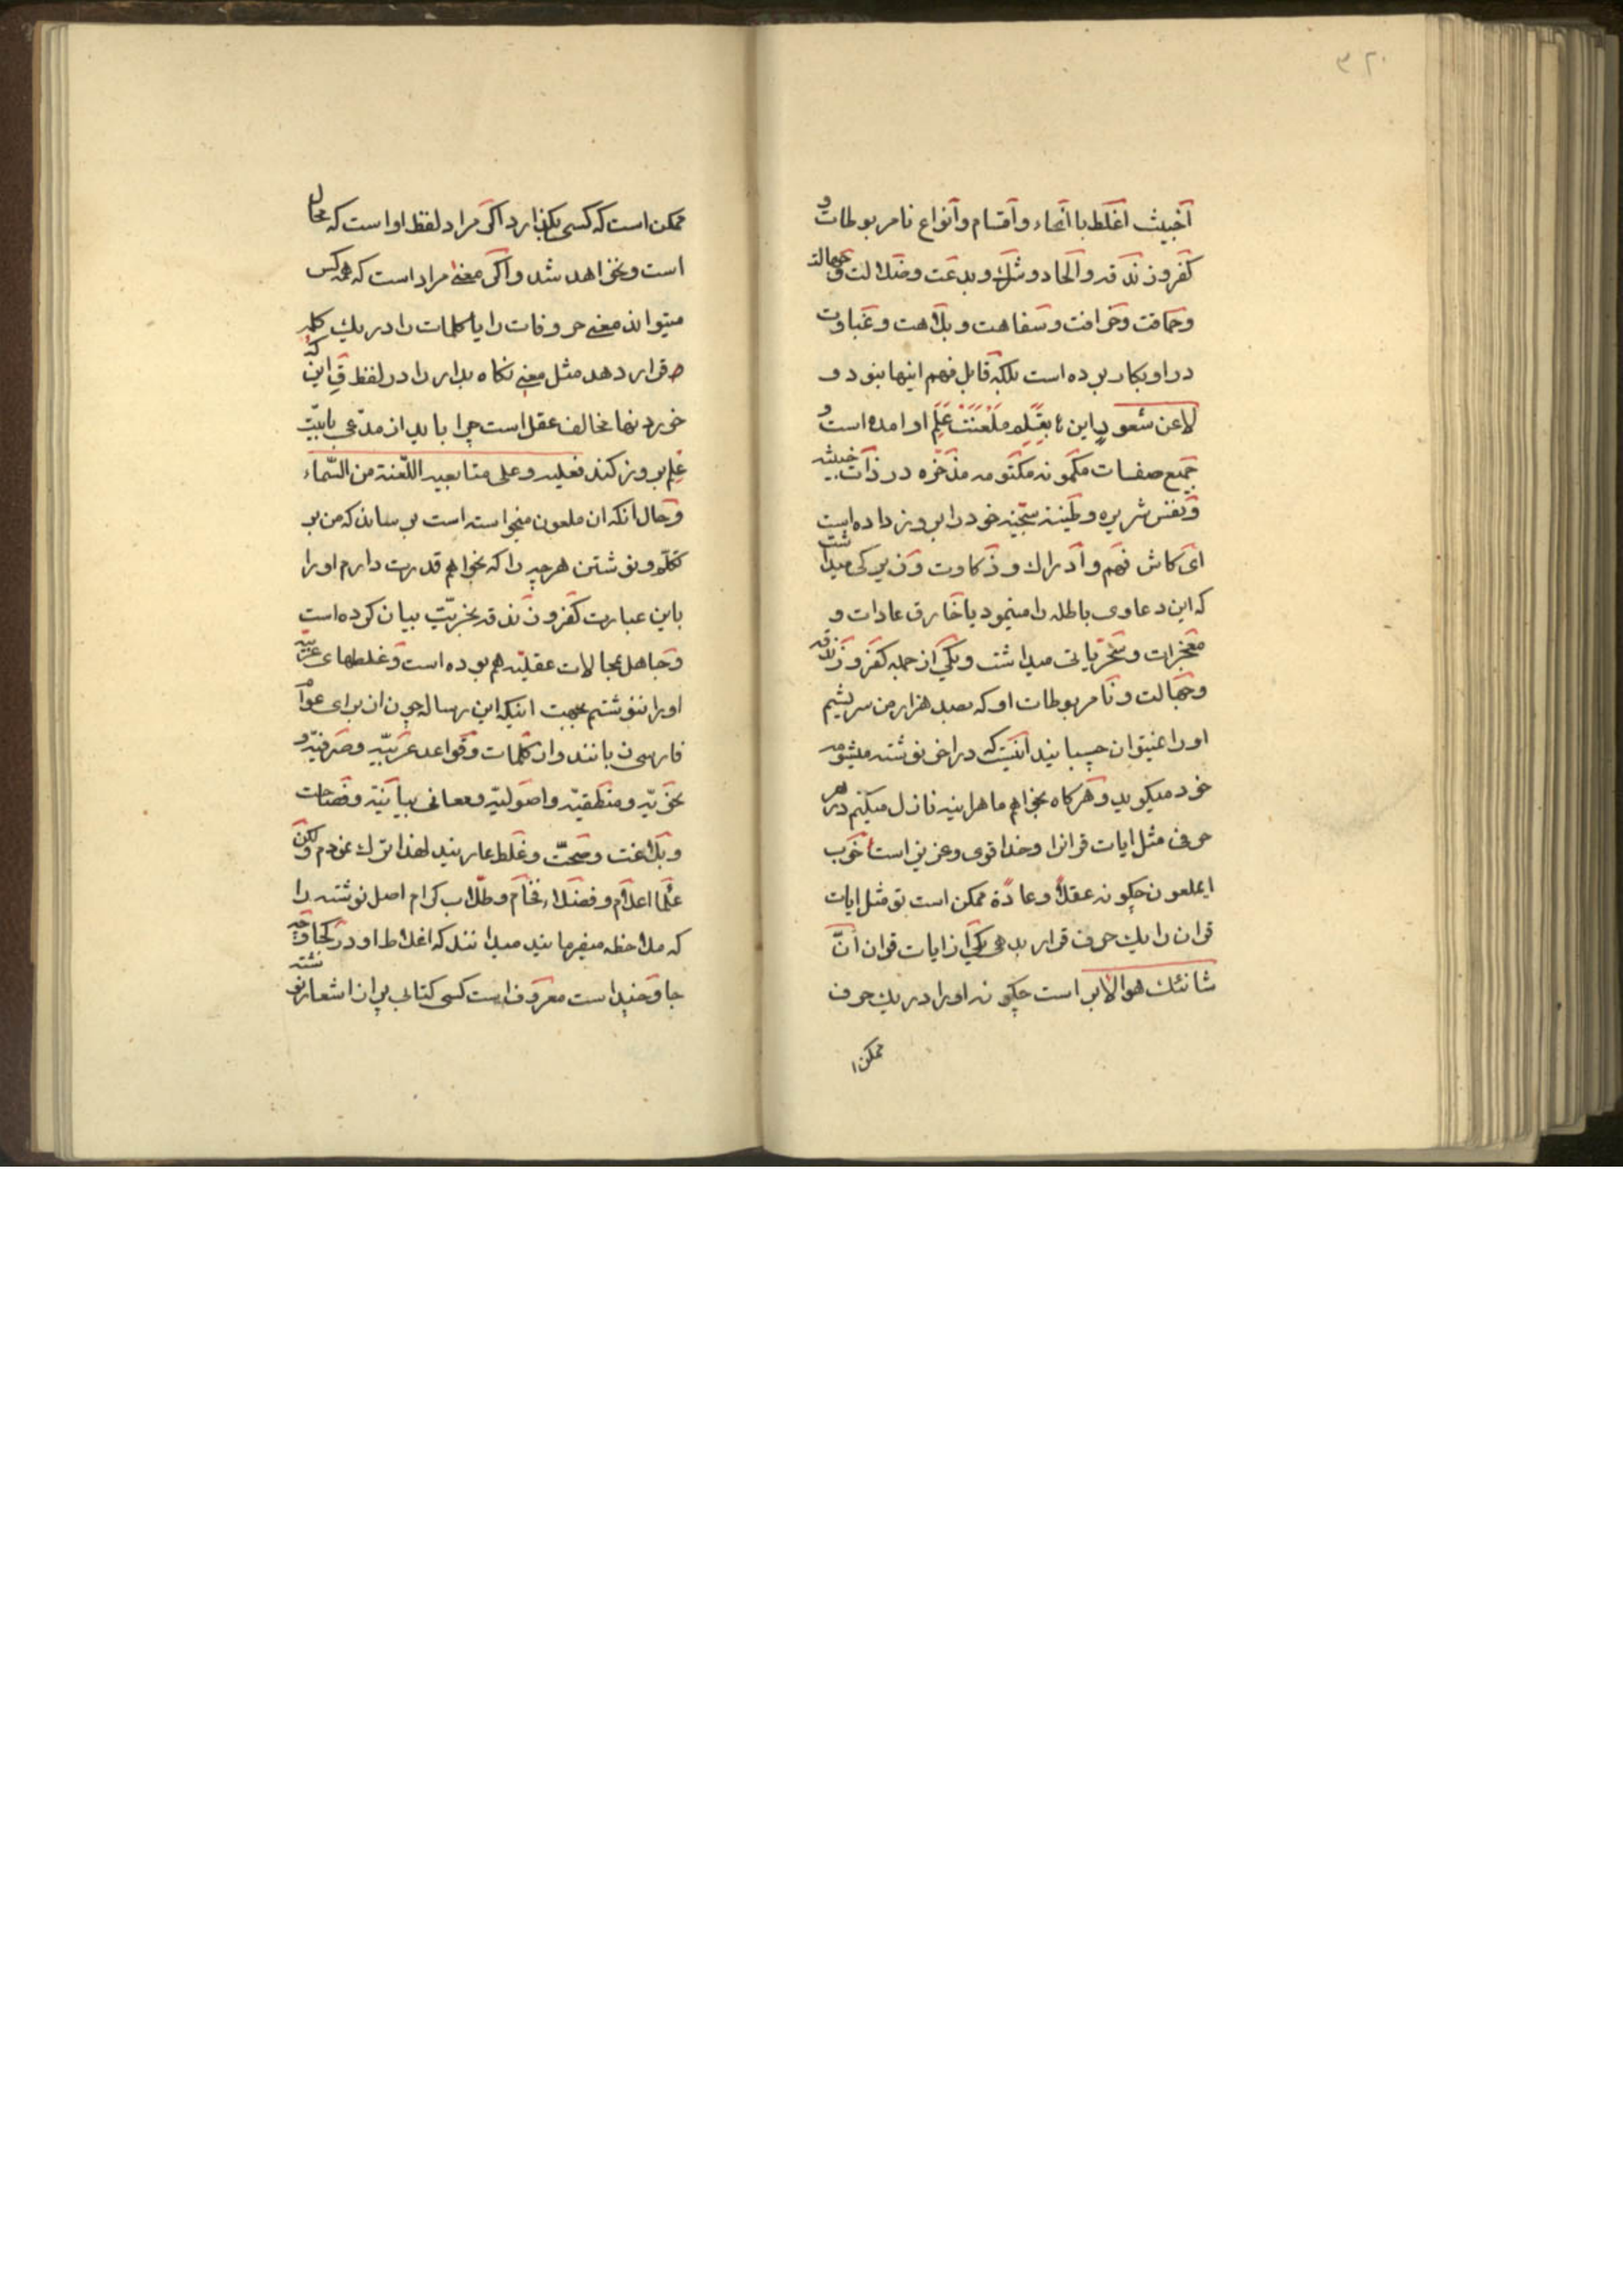 ۳۲۰
اخبث اغلط با انحاء و اقسام و انواع نامربوطات و
کفر و زندقه و الحاد و شک و بدعت و ضلالت و جهالت
و حماقت و خرافت و سفاهت و بلاهت و غباوت
در او بکار برده است بلکه قابل فهم اینها نبود و
لاعن شعور این بقله ملعنت علم او امده است و
جمیع صفات مکمونه مکتومه مذخره در ذات خبیثه
و نفس شریره و طینة سجینه خود را بروز داده است
ای کاش فهم و ادراک و ذکاوت و زیرکی میداشت
که این دعاوی باطله را مینمود یا خارق عادات و
معجزات و سخریاتی میداشت و یکی از جمله کفر و زندقه
و جهالت و نامربوطات او که بصد هزار من سریشیم
او را نمیتوان چسبانید انیست که در اخر نوشته میشومه
خود میگوید و هرگاه بخواهم ما هراینه نازل میکنم در هر
حرفی مثل ایات قرانرا و خدا قوی و عزیز است خوب
ایملعون چگونه عقلاً و عادةً ممکن است تو مثل ایات
قران را یک حرف قرار بدهی یکی از ایات قران انّ
شانئک هو الابتر است چگونه او را در یک حرف
ممکن ا
ممکن است که کسی بگذارد اگر مراد لفظ او است که محال
است و نخواهد شد و اگر معنی مراد است که همه کس
میتواند معنی حروفات را یا کلمات را در یک کلمه
قرار دهد مثل معنی نگاه بدار را در لفظ قِ این که
خورد نها مخالف عقل است چرا باید از مدّعی بابیّت
علم بروز کند فعلیه و علی متابعیه اللّعنة من السّماء
و حال انکه ان ملعون میخواسته است برساند که من بر
تکلم و نوشتن هر چه را که بخواهم قدرت دارم او را
باین عبارت کفر و زندقه بخریّت بیان کرده است
و جاهل بمحالات عقلیّه هم بوده است و غلطهای عربیّه
او را ننوشتم بجهت اینکه این رساله چون ان برای عوام
فارسی زبانند و از کلمات و قواعد عربیّه و صرفیّه و
نحویّه و منطقیّه و اصولیّه و معانی بیانیّه و فصاحات
و بلاغت و صحّت و غلط عاریند لهذا ترک نمودم ولکن
علما اعلام و فضلاء فخام و طلّاب کرام اصل نوشته را
که ملاحظه میفرمایند میدانند که اغلاط او در کجا و چه
جا و چنید است معروف است کسی کتابی پر از اشعار نوشته